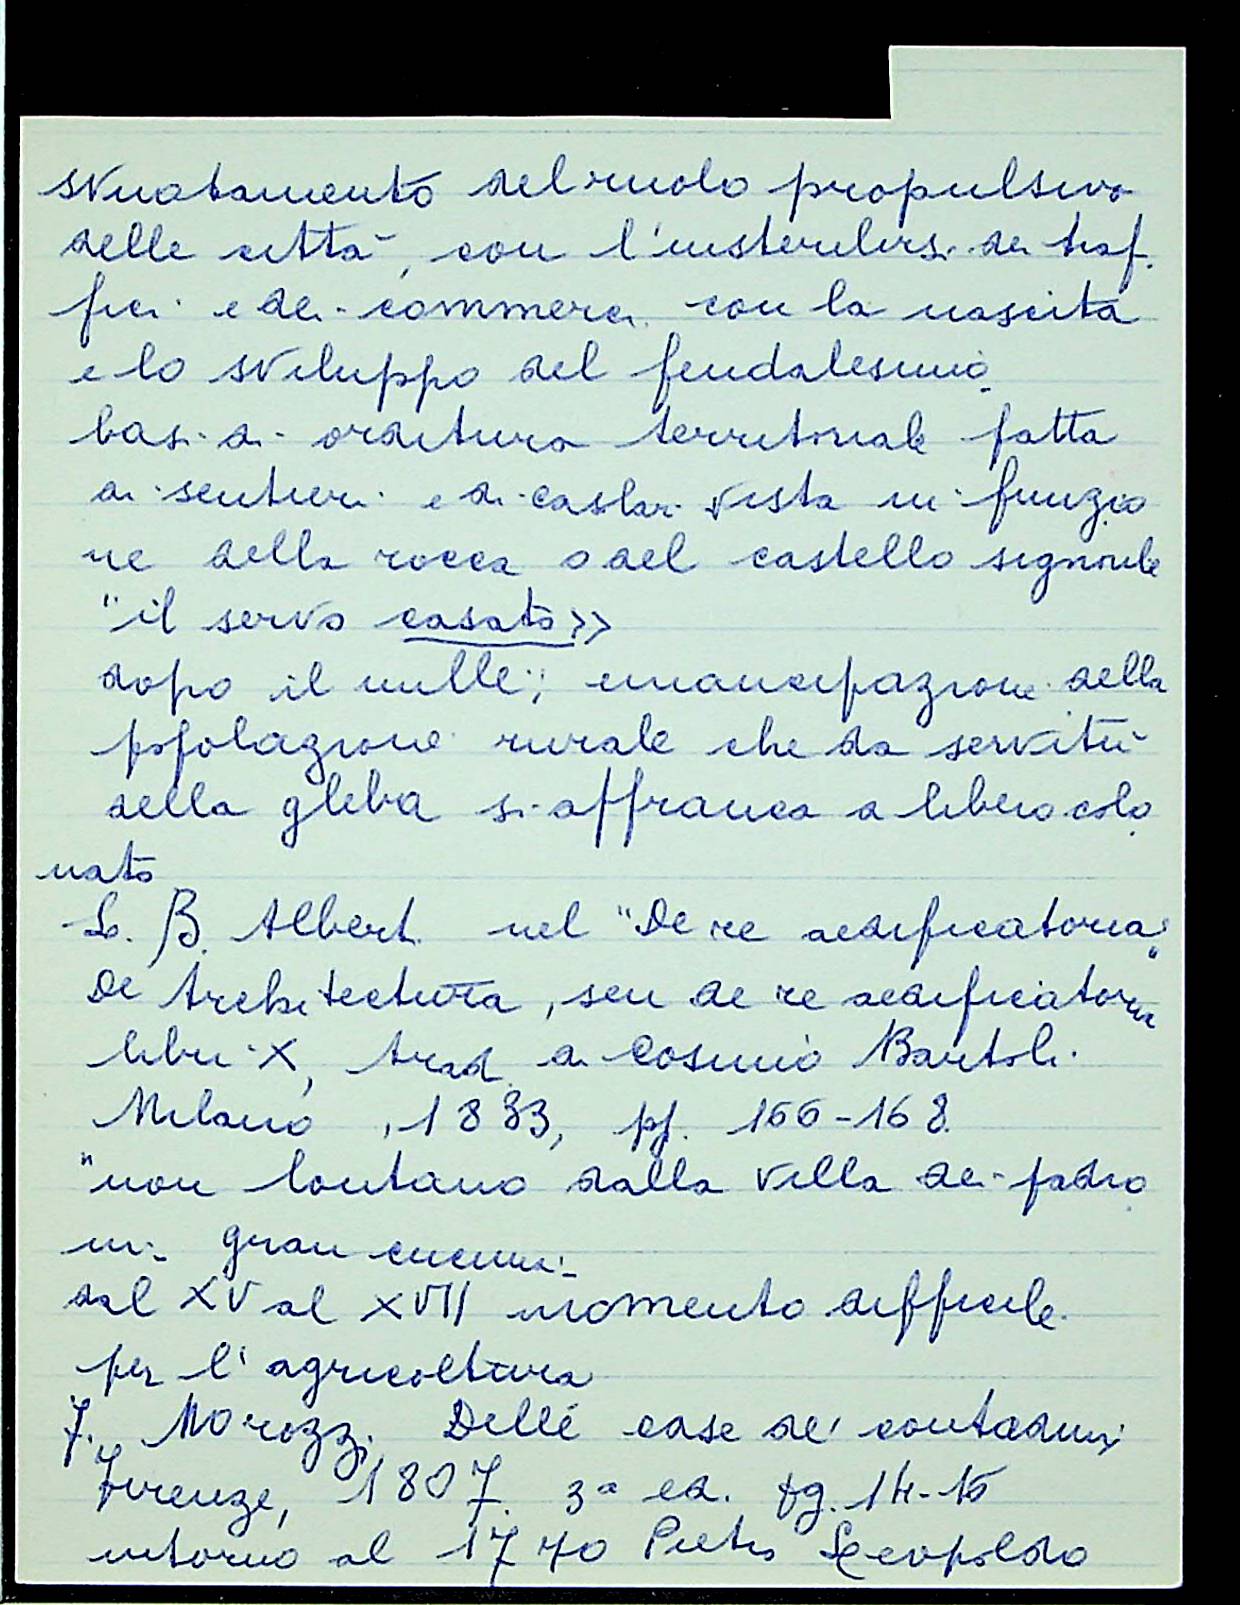 svuotamento del ruolo propulsivo
delle città, con l'insterilirsi dei traf.
fici e dei commerci con la nascita
e lo sviluppo del feudalesimo
basi di orditura territoriale fatta
di sentieri e di casolari vista in funzio
ne della rocca o del castello signorile
"il servo casato»
dopo il mille; emancipazione della
popolazione rurale che da servitù
della gleba si affranca a libero colo
nato
L. B. Alberti nel "De re aedificatoria"
De Architectura, seu de re aedificatoria
libri X, trad. di Cosimo Bartoli
Milano, 1833, pp. 166-168
"non lontano dalla villa dei padro
ni gran
dal XV al XVII momento difficile
per l'agricoltura
F. Morozzi Delle case de' contadini
Firenze, 1807. 3ª ed. pg. 14-15
intorno al 1770 Pietro Leopoldo